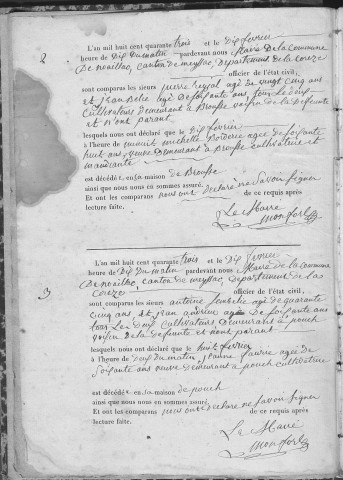 2
L'an mil huit cent quarante trois et le dix fevrier
heure de Dix du matin pardevant nous Maire de la Commune
De noaillac, canton de meyssac, Departement de la correze
officier de l'état civil,
sont comparus les sieurs pierre agé de vingt cinq ans
et jean agé De soixante ans tous les deux
Cultivateurs demeurant a voisin de la Defeunte
et n'ont parant
lesquels nous ont déclaré que le Dix fevrier
à l'heure de minuit michelle agee de soixante
huit ans, veuve demeurant a cultivatrice et
est décédé en sa maison de
ainsi que nous nous en sommes assuré.
Et ont les comparans nous ont declaré ne savoir signer
de ce requis après
lecture faite.
Le Maire
Monfort
3
L'an mil huit cent quarante trois et le Dix fevrier
heure de Dix du matin pardevant nous Maire de la commune
De noaillac, canton de meyssac, Departement de la
Correze officier de l'état civil,
sont comparus les sieurs antoine agé de quarante
cinq ans, et jean agé De soixante ans
tous les Deux Cultivateurs demeurants a pouch
voisin de la defeunte et n'ont parant
lesquels nous ont déclaré que le huit fevrier
à l'heure de Deux du matin, jeanne faurie agee de
soixante ans veuve demeurant a pouch cultivatrice
est décédé en sa maison de pouch
ainsi que nous nous en sommes assuré.
Et ont les comparans nous ont declaré ne savoir signer
de ce requis après
lecture faite.
Le Maire
Monfort